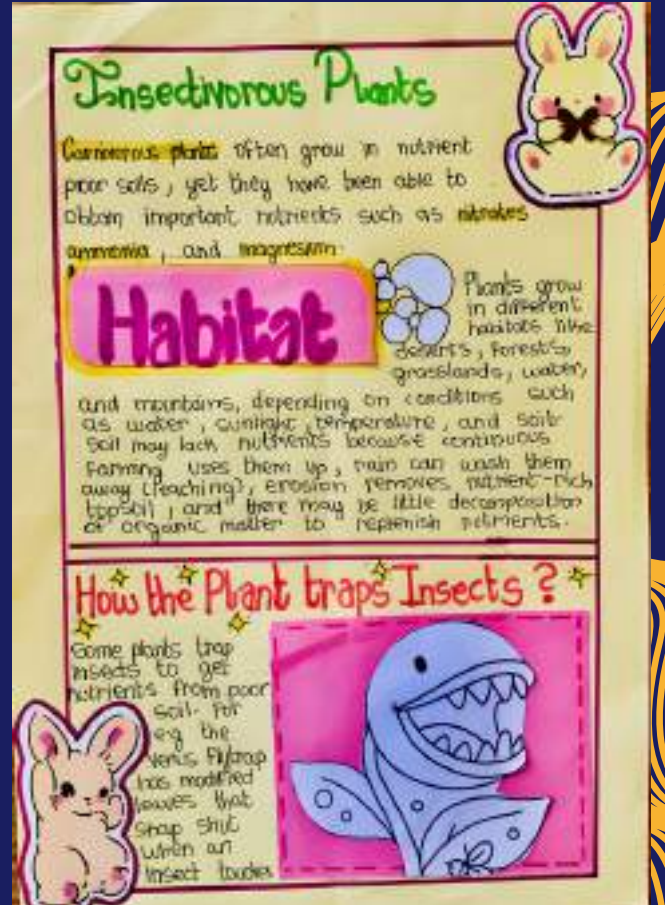 Insectivorous Plants
Carnivorous plants often grow in nutrient
poor soils, yet they have been able to
obtain important nutrients such as nitrates
ammonia, and magnesium.
Habitat
Plants grow
in different
habitats like
deserts, forests,
grasslands, water,
and mountains, depending on conditions such
as water, sunlight, temperature, and soil.
Soil may lack nutrients because continuous
farming uses them up, rain can wash them
away (leaching), erosion removes nutrient-rich
topsoil, and there may be little decomposition
of organic matter to replenish nutrients.
How the Plant traps Insects ?
Some plants trap
insects to get
nutrients from poor
soil. For
eg the
Venus flytrap
has modified
leaves that
snap shut
when an
insect touches